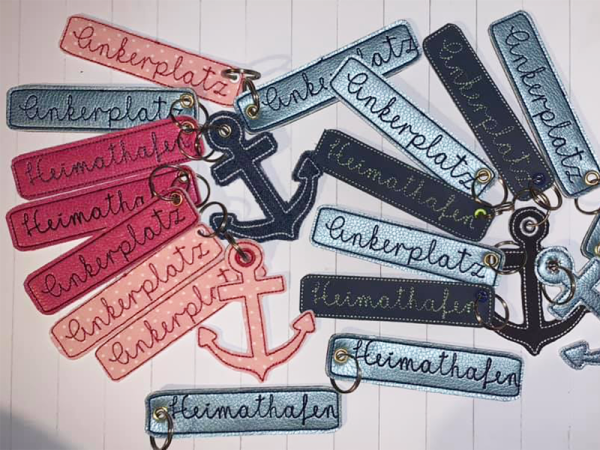 Ankerplatz
Ankerplatz
Ankerplatz
Ankerplatz
Ankerplatz
Ankerplatz
Heimathafen
Heimathafen
Heimatha
Ankerplatz
Ankerplatz
Ankerplatz
Ankerplatz
Heimathafen
Heimathafen
Heimathafen